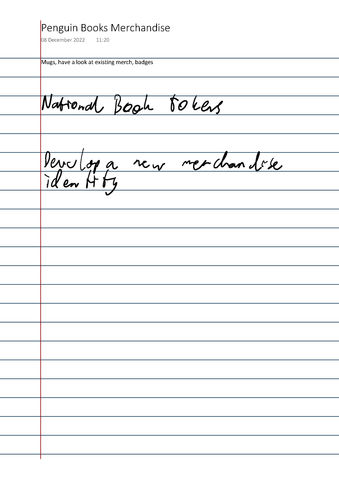 Penguin Books Merchandise
08 December 2022 11:20
Mugs, have a look at existing merch, badges
National Book tokens
Develop a new merchandise
identity